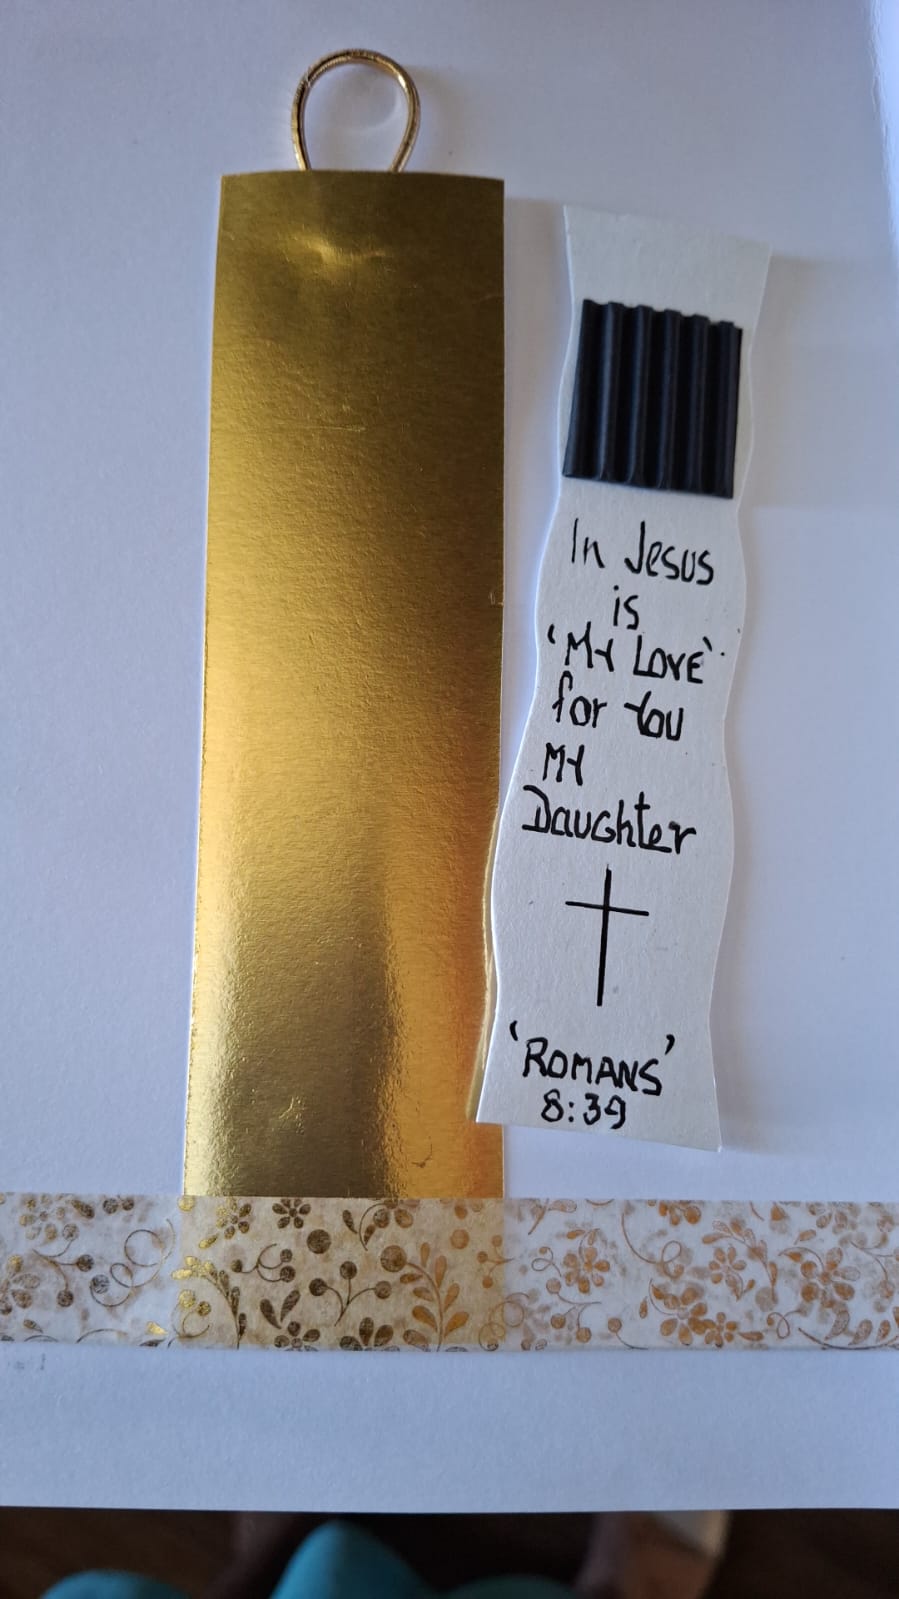 In Jesus
is
'My Love'
for You
My
Daughter
'ROMANS'
8:39